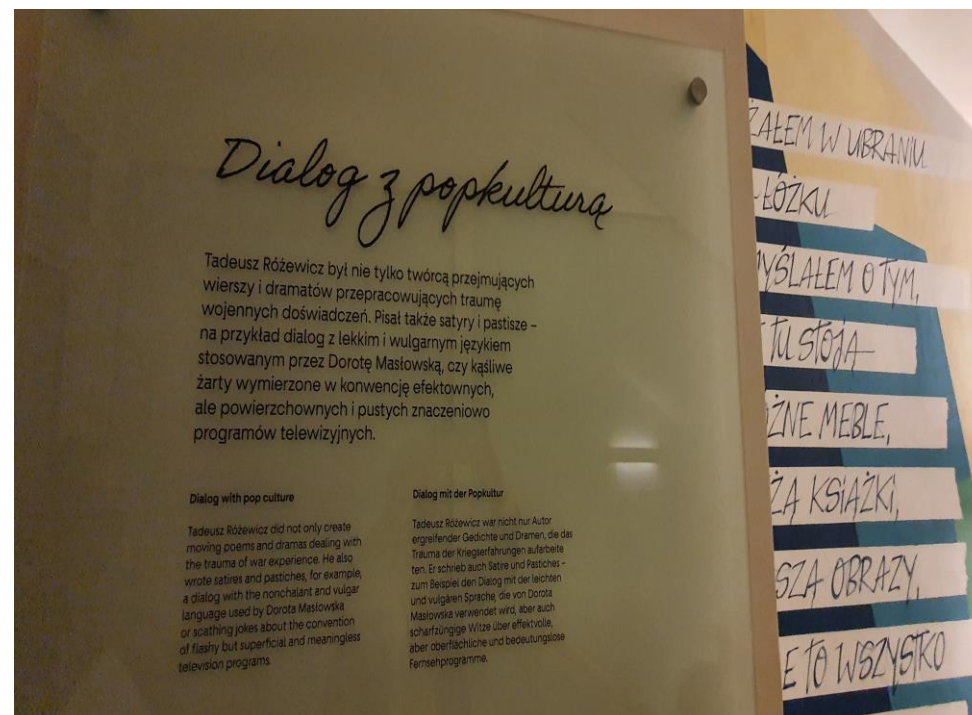 Dialog z popkulturą
Tadeusz Różewicz był nie tylko twórcą przejmujących
wierszy i dramatów przepracowujących traumę
wojennych doświadczeń. Pisał także satyry i pastisze –
na przykład dialog z lekkim i wulgarnym językiem
stosowanym przez Dorotę Masłowską, czy kąśliwe
żarty wymierzone w konwencję efektownych,
ale powierzchownych i pustych znaczeniowo
programów telewizyjnych.
Dialog with pop culture
Tadeusz Różewicz did not only create
moving poems and dramas dealing with
the trauma of war experience. He also
wrote satires and pastiches, for example,
a dialog with the nonchalant and vulgar
language used by Dorota Masłowska
or scathing jokes about the convention
of flashy but superficial and meaningless
television programs.
Dialog mit der Popkultur
Tadeusz Różewicz war nicht nur Autor
ergreifender Gedichte und Dramen, die das
Trauma der Kriegserfahrungen aufarbeite
ten. Er schrieb auch Satire und Pastiches –
zum Beispiel den Dialog mit der leichten
und vulgären Sprache, die von Dorota
Masłowska verwendet wird, aber auch
scharfzüngige Witze über effektvolle,
aber oberflächliche und bedeutungslose
Fernsehprogramme.
W UBRANIU
ŁÓŻKU
O TYM,
TU STOJĄ
MEBLE,
KSIĄŻKI,
OBRAZY,
TO WSZYSTKO